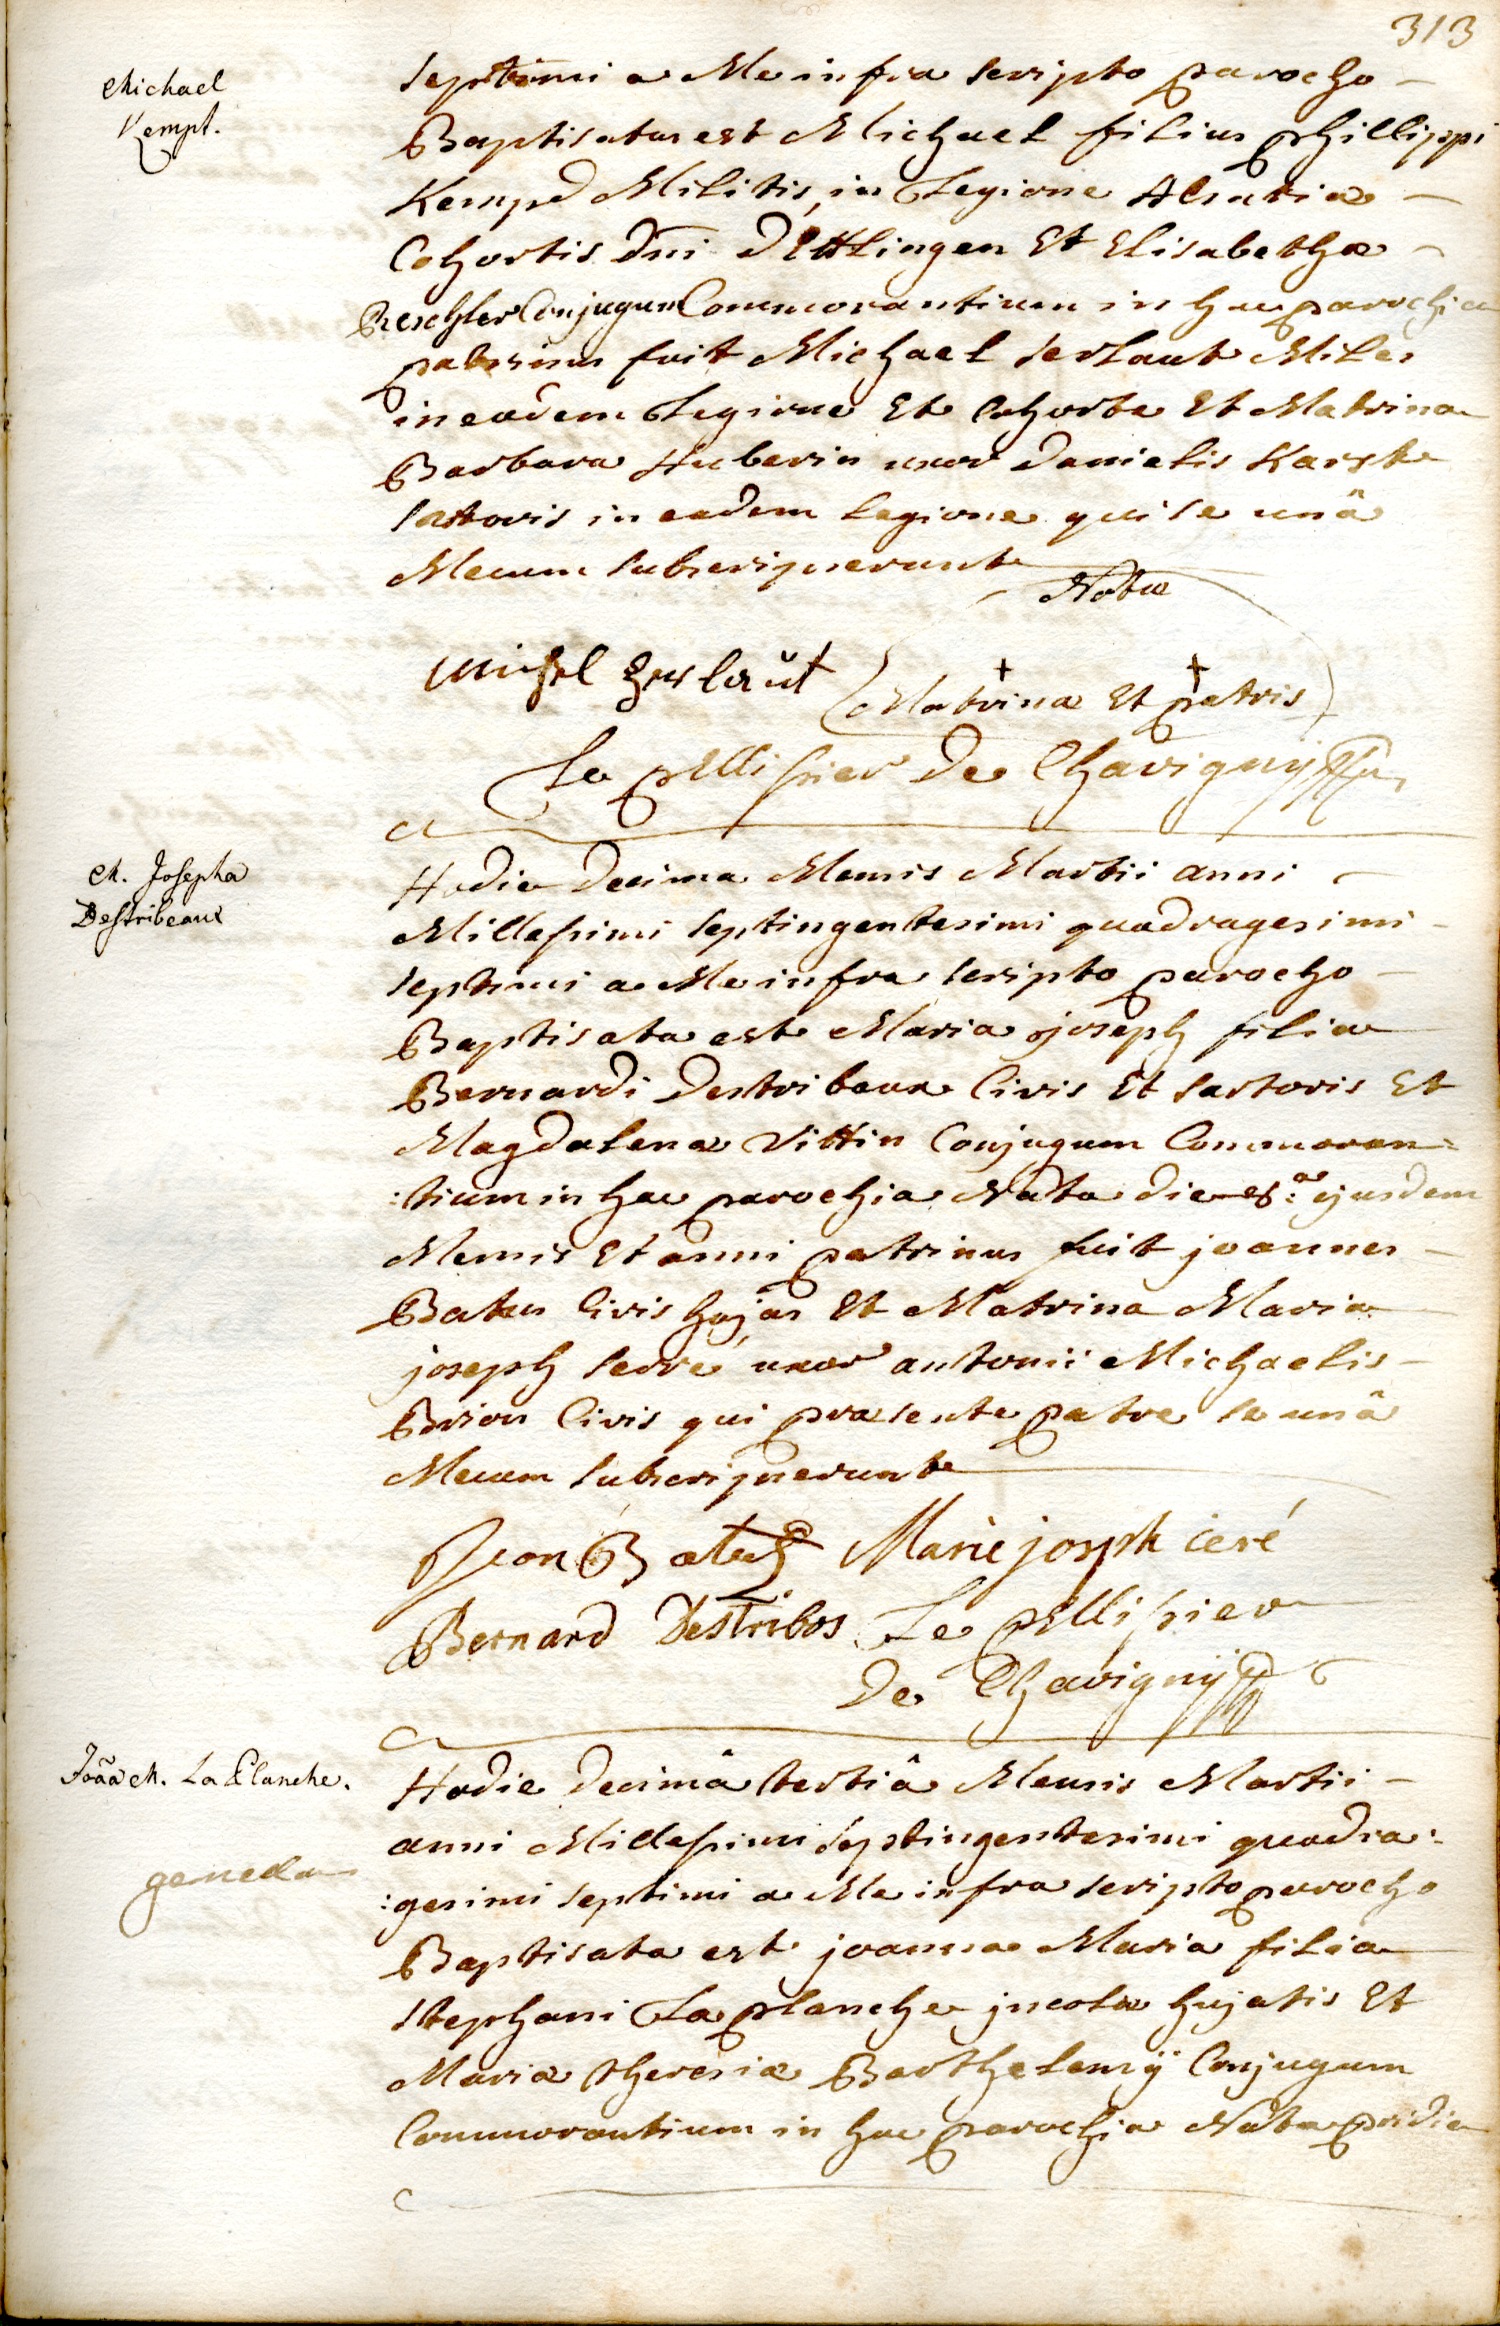 313
Michael
Kempt.
septimi a Me infra scripto parocho –
Baptisatus est Michael filius phillippi
Kempd Militis, in Legione Alsatiæ –
Cohortis Dni D'Ettlingen Et Elisabethæ –
Reschler Conjugum Commorantium in hac parochia
patrinus fuit Michael serlaut Miles
in eadem Legione Et Cohorte Et Matrina
Barbara Huberin uxor Danielis Karst
sartoris in eadem legione qui se unâ
Mecum subscripserunt
Nota
Michel Zerlaut
(Matrinæ Et patris)
Le pellissier De Chavigny
M. Josepha
Destribeaux
Hodie Decima Mensis Martii anni –
Millesimi septingentesimi quadragesimi –
septimi a Me infra scripto parocho –
Baptisata est Maria joseph filia
Bernardi Destribeaux Civis Et sartoris Et
Magdalenæ Vittin Conjugum Commoran:
:tium in hac parochia Nata die 8.a ejusdem
Mensis Et anni patrinus fuit joannes –
Batus Civis hujas Et Matrina Maria
joseph serré uxor antonii Michaelis –
Brion Civis qui præsente patre se unâ
Mecum subscripserunt
Jean Batus Marie joseph ceré
Bernard Destribos Le pellissier
De Chavigny
Joãa M. La Planche.
Hodie Decimâ tertiâ Mensis Martii –
anni Millesimi septingentesimi quadra:
:gesimi septimi a Me infra scripto parocho
Baptisata est joanna Maria filia
stephani La planche jncolæ hujatis Et
Mariæ theresiæ Barthelemÿ Conjugum
Commorantium in hac parochia Nata pridie